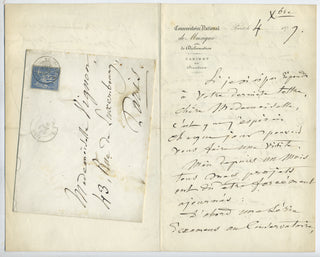 Conservatoire National
de Musique
et
de Déclamation
CABINET
du
Directeur
Paris, le 4 Xbre 1879.
Si je n'ai pas répondu
à votre dernière lettre,
chère Mademoiselle,
c'est que j'espérais
chaque jour pouvoir
vous faire une visite.
Mais depuis un mois
tous mes projets
ont dû être forcément
ajournés :
D'abord une série
d'examens au Conservatoire,
Mademoiselle
43, Rue de Luxembourg
Paris.